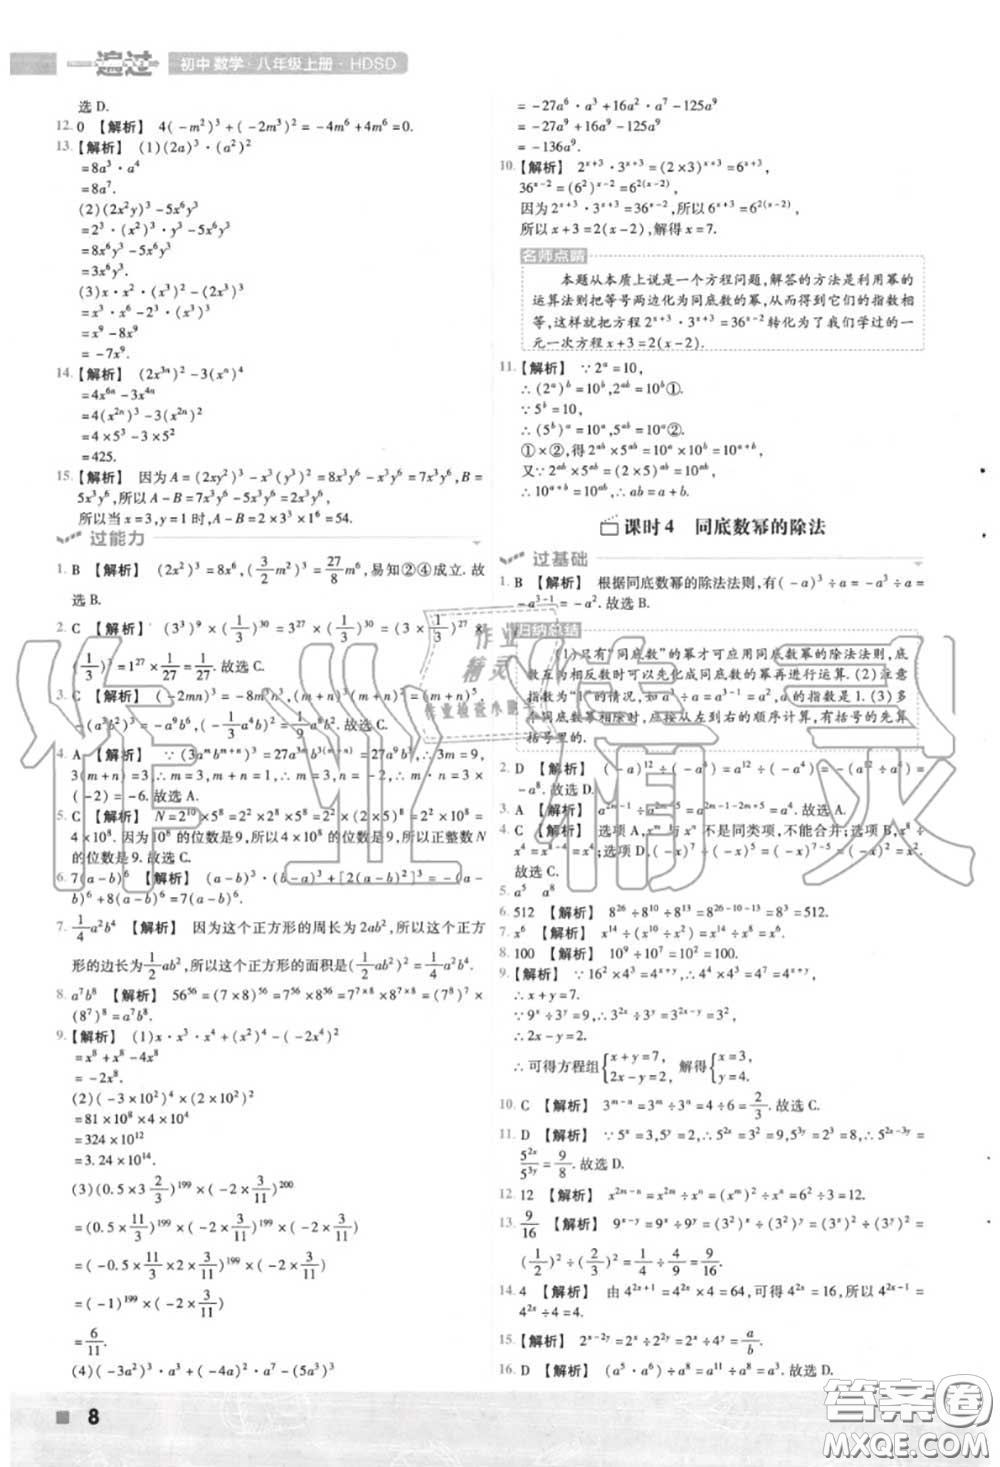 一遍过 初中数学·八年级上册·HDSD
选 D.
12. 0 【解析】 4(-m²)³+(-2m³)²=-4m⁶+4m⁶=0.
13. 【解析】 (1)(2a)³·(a²)²
=8a³·a⁴
=8a⁷.
(2)(2x²y)³-5x⁶y³
=2³·(x²)³·y³-5x⁶y³
=8x⁶y³-5x⁶y³
=3x⁶y³.
(3)x·x²·(x²)³-(2x³)³
=x³·x⁶-2³·(x³)³
=x⁹-8x⁹
=-7x⁹.
14. 【解析】 (2x³ⁿ)²-3(xⁿ)⁴
=4x⁶ⁿ-3x⁴ⁿ
=4(x²ⁿ)³-3(x²ⁿ)²
=4×5³-3×5²
=425.
15. 【解析】 因为A=(2xy²)³-x³(y³)²=8x³y⁶-x³y⁶=7x³y⁶,B=
5x³y⁶,所以A-B=7x³y⁶-5x³y⁶=2x³y⁶,
所以当x=3,y=1时,A-B=2×3³×1⁶=54.
过能力
1. B 【解析】 (2x²)³=8x⁶,(3/2 m²)³=27/8 m⁶,易知②④成立.故
选B.
2. C 【解析】 (3³)⁹×(1/3)³⁰=3²⁷×(1/3)³⁰=3²⁷×(1/3)²⁷×
(1/3)³=1×1/27=1/27.故选C.
3. C 【解析】 (-2mn)³=-8m³n³,(m+n)³(m+n)²=(m+n)⁵,
-(-a³b²)³=a⁹b⁶
4. A 【解析】 ∵(3aᵐbᵐ⁺ⁿ)³=27a³ᵐb³⁽ᵐ⁺ⁿ⁾=27a⁹b³,∴3m=9,
3(m+n)=3,∴m=3,m+n=1,∴m=3,n=-2,∴mn=3×
(-2)=-6.故选A.
5. C 【解析】 N=2¹⁰×5⁸=2²×2⁸×5⁸=2²×(2×5)⁸=
4×10⁸.因为10⁸的位数是9,所以4×10⁸的位数是9,所以正整数N
的位数是9.故选C.
6. 7(a-b)⁶ 【解析】 (a-b)³·(b-a)³+[2(a-b)²]³=-(a-
b)⁶+8(a-b)⁶=7(a-b)⁶.
7. 1/4 a²b⁴ 【解析】 因为这个正方形的周长为2ab²,所以这个正方
形的边长为1/2 ab²,所以这个正方形的面积是(1/2 ab²)²=1/4 a²b⁴.
8. a⁷b⁸ 【解析】 56⁵⁶=(7×8)⁵⁶=7⁵⁶×8⁵⁶=7⁷ˣ⁸×8⁷ˣ⁸=(7⁸)⁷×
(8⁷)⁸=a⁷b⁸.
9. 【解析】 (1)x·x³·x⁴+(x²)⁴-(-2x⁴)²
=x⁸+x⁸-4x⁸
=-2x⁸.
(2)(-3×10²)⁴×(-2×10²)²
=81×10⁸×4×10⁴
=324×10¹²
=3.24×10¹⁴
(3)(0.5×3 2/3)¹⁹⁹×(-2×3/11)²⁰⁰
=(0.5×11/3)¹⁹⁹×(-2×3/11)¹⁹⁹×(-2×3/11)
=(-0.5×11/3×2×3/11)¹⁹⁹×(-2×3/11)
=(-1)¹⁹⁹×(-2×3/11)
=6/11.
(4)(-3a²)³·a³+(-4a)²·a⁷-(5a³)³
=-27a⁶·a³+16a²·a⁷-125a⁹
=-27a⁹+16a⁹-125a⁹
=-136a⁹.
10. 【解析】 2ˣ⁺³·3ˣ⁺³=(2×3)ˣ⁺³=6ˣ⁺³,
36ˣ⁻²=(6²)ˣ⁻²=6²⁽ˣ⁻²⁾,
因为2ˣ⁺³·3ˣ⁺³=36ˣ⁻²,所以6ˣ⁺³=6²⁽ˣ⁻²⁾,
所以x+3=2(x-2),解得x=7.
名师点睛
本题从本质上说是一个方程问题,解答的方法是利用幂的
运算法则把等号两边化为同底数的幂,从而得到它们的指数相
等,这样就把方程2ˣ⁺³·3ˣ⁺³=36ˣ⁻²转化为了我们学过的一
元一次方程x+3=2(x-2).
11. 【解析】 ∵2ᵃ=10,
∴(2ᵃ)ᵇ=10ᵇ,2ᵃᵇ=10ᵇ①.
∵5ᵇ=10,
∴(5ᵇ)ᵃ=10ᵃ,5ᵃᵇ=10ᵃ②.
①×②,得2ᵃᵇ×5ᵃᵇ=10ᵃ×10ᵇ=10ᵃ⁺ᵇ,
又∵2ᵃᵇ×5ᵃᵇ=(2×5)ᵃᵇ=10ᵃᵇ,
∴10ᵃ⁺ᵇ=10ᵃᵇ,∴ab=a+b.
课时4 同底数幂的除法
过基础
1. B 【解析】 根据同底数幂的除法法则,有(-a)³÷a=-a³÷a=
-a³⁻¹=-a².故选B.
归纳总结
(1)只有“同底数”的幂才可应用同底数幂的除法法则,底
数互为相反数时可以先化成同底数的幂再进行运算.(2)注意
指数为“1”的情况,如a³÷a=a³⁻¹=a²,a的指数是1.(3)多
个同底数幂相除时,应按从左到右的顺序计算,有括号的先算
括号里的.
2. D 【解析】
-a⁸.故选D.
3. A
4. C 【解析】 选项A,x⁶与x³不是同类项,不能合并;
故选C.
5. a⁵ a⁸
6. 512 【解析】 8²⁶÷8¹⁰÷8¹³=8²⁶⁻¹⁰⁻¹³=8³=512.
7. x⁶
8. 100 【解析】 10⁹÷10⁷=10²=100.
9. 【解析】
∴x+y=7.
∵9ˣ÷3ʸ=3⁴,∴3²ˣ÷3ʸ=3⁴,3²ˣ⁻ʸ=3⁴,
∴2x-y=4.
∴可得方程组{x+y=7, 2x-y=4, 解得{x=3, y=4.
10. C 【解析】 3ᵐ⁻ⁿ=3ᵐ÷3ⁿ=4÷6=2/3.故选C.
11. D 【解析】 ∵5ˣ=3,5ʸ=2,∴5²ˣ=9,5³ʸ=8,∴5²ˣ⁻³ʸ=
5²ˣ/5³ʸ=9/8.故选D.
12. 12 【解析】 x²ᵐ⁻ⁿ=x²ᵐ÷xⁿ=(xᵐ)²÷xⁿ=6²÷3=12.
13. 9/16 【解析】 9ˣ⁻ʸ=9ˣ÷9ʸ=(3²)ˣ÷(3²)ʸ=(3ˣ)²÷(3ʸ)²=
(1/2)²÷(2/3)²=1/4÷4/9=9/16.
14. 4 【解析】 由4²ˣ⁺¹=4²ˣ×4=64,可得4²ˣ=16,所以4²ˣ⁻¹=
4²ˣ÷4=4.
15. 【解析】 2ˣ⁻²ʸ=2ˣ÷2²ʸ=2ˣ÷4ʸ=a/b.
16. D 【解析】 (a⁵·a⁶)÷a⁸=a¹¹÷a⁸=a³.故选D.
8
作业精灵
答案圈
MXQE.COM